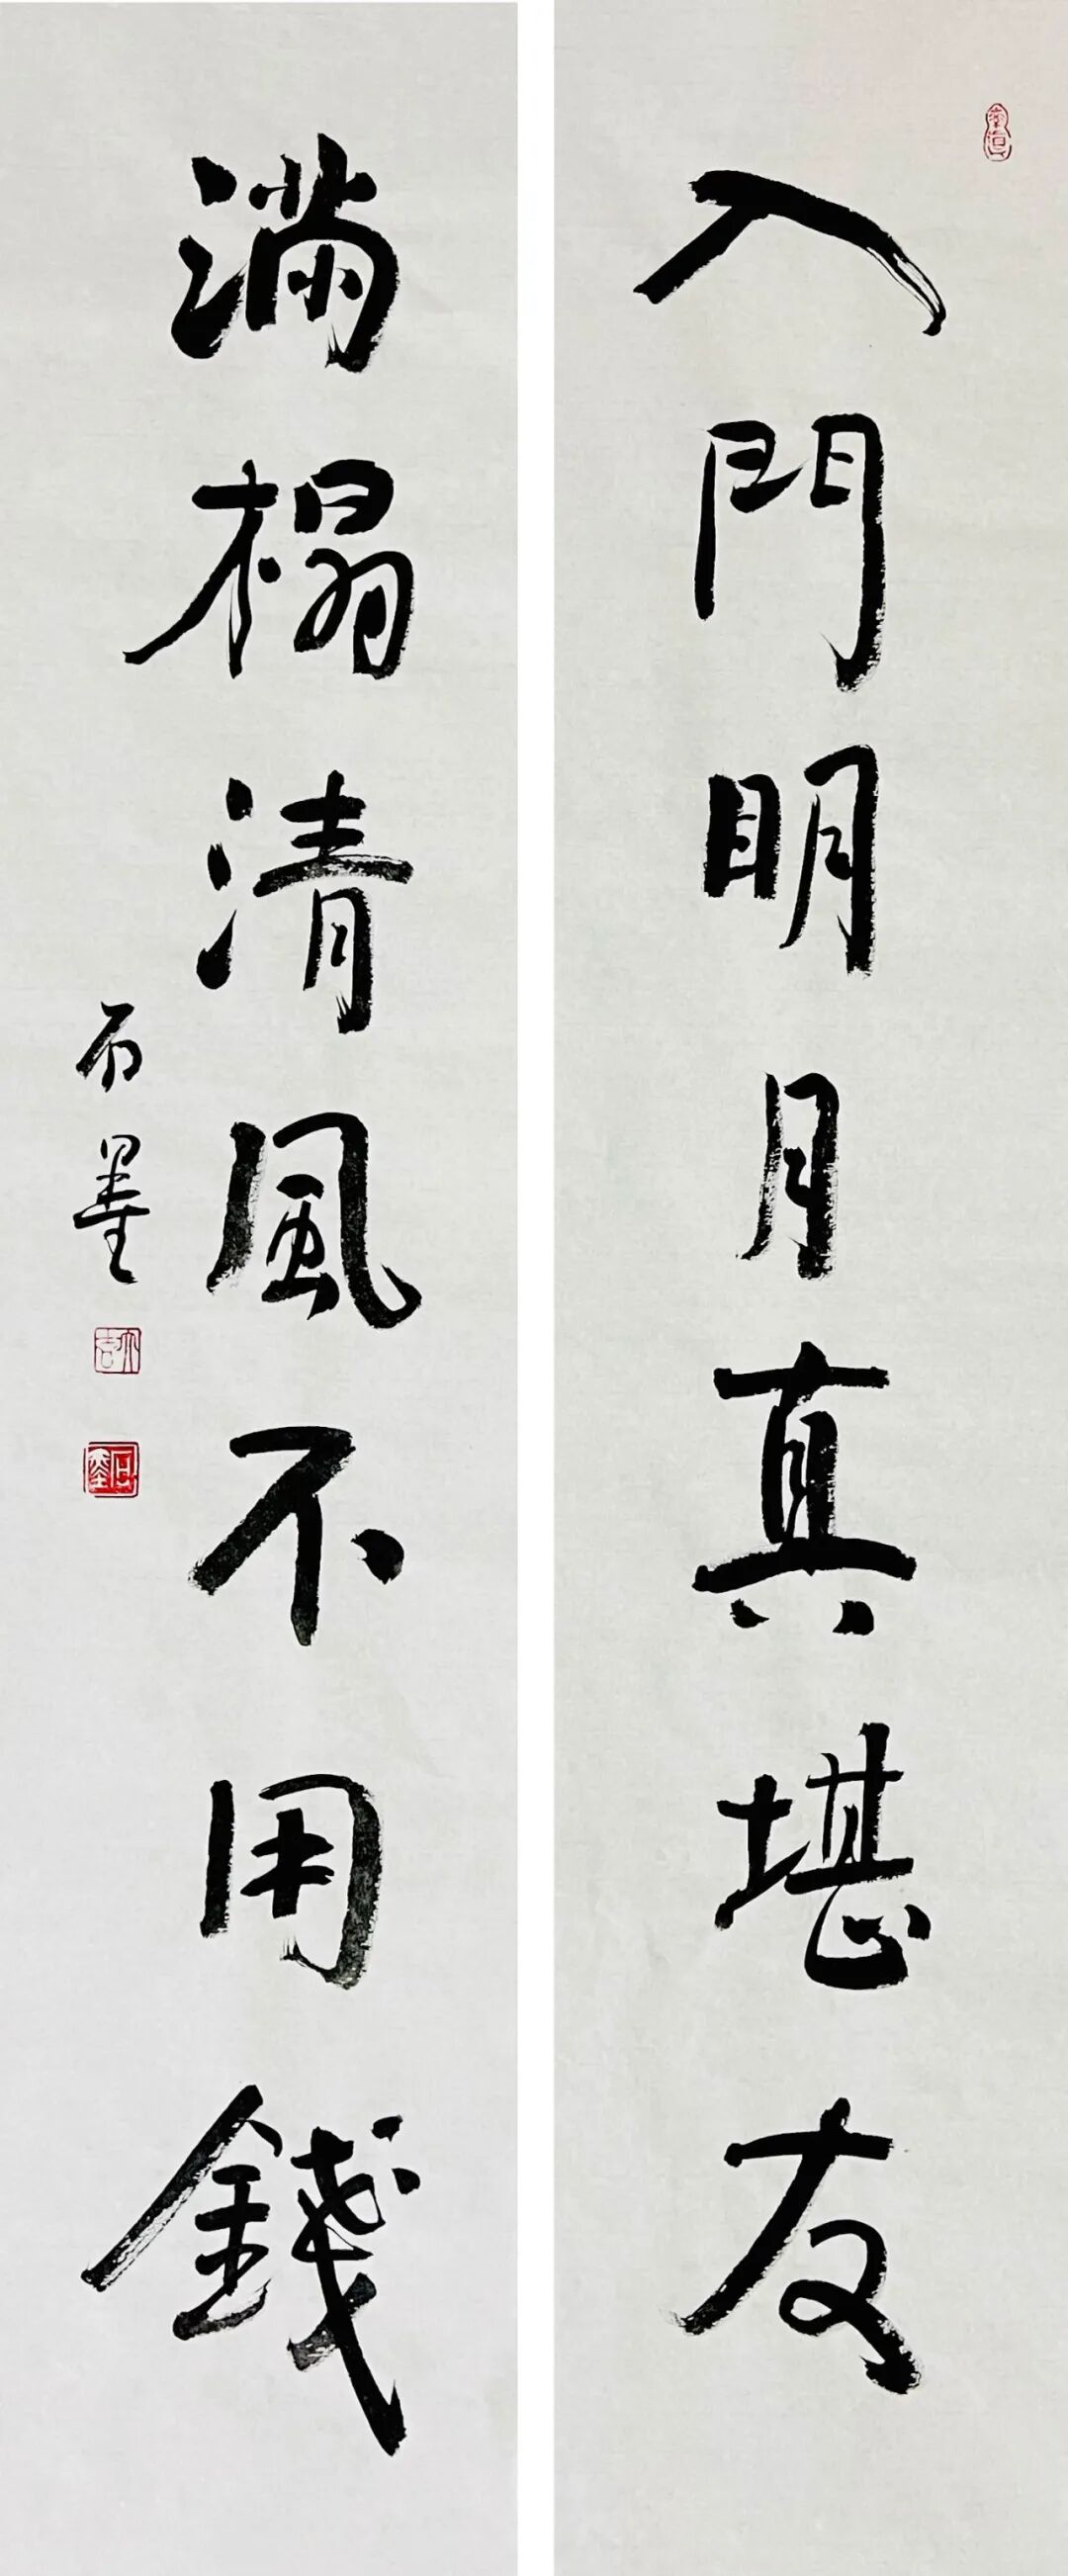 入門明月真堪友
滿榻清風不用錢
石墨